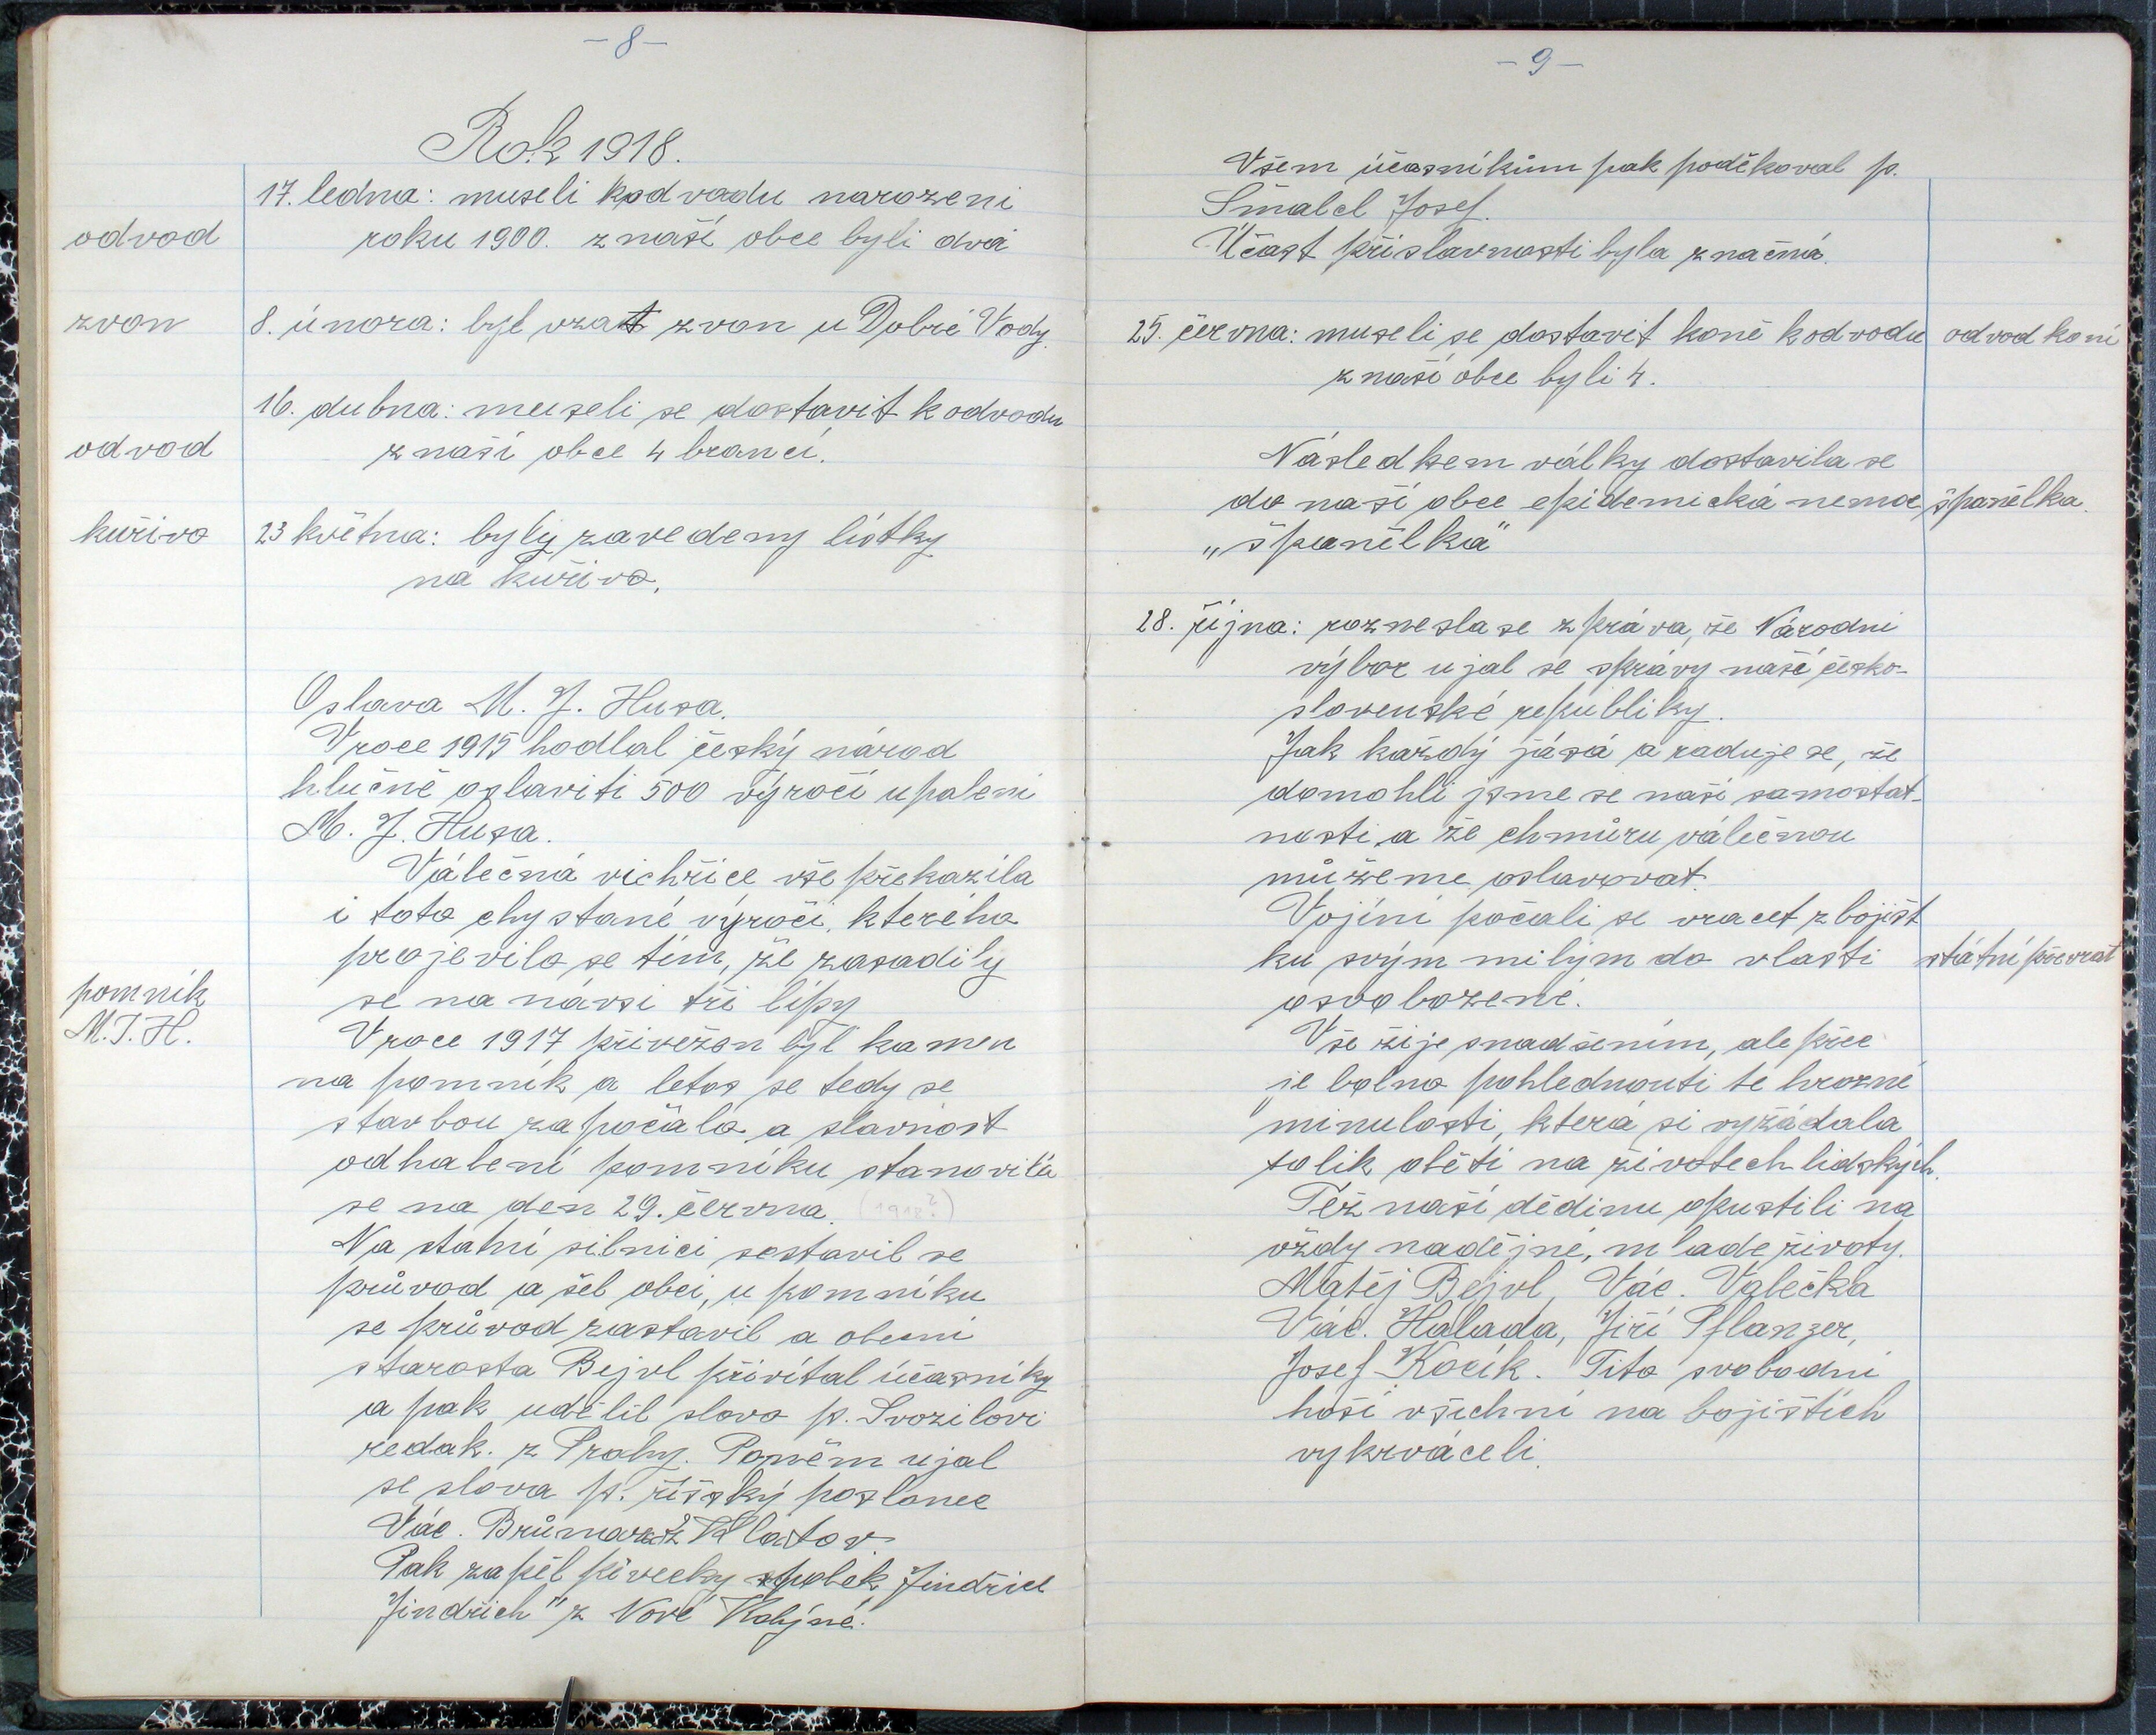 - 8 -
Rok 1918.
17. ledna: museli k odvodu narozeni
odvod
roku 1900. z naší obce byli dva
zvon
8. února: byl vzat zvon u Dobré Vody.
16. dubna: museli se dostavit k odvodu
odvod
z naší obce 4 branci.
kuřivo
23 května: byly zavedeny lístky
na kuřivo.
Oslava M. J. Husa.
V roce 1915 hodlal český národ
hlučně oslaviti 500 výročí upalení
M. J. Husa.
Válečná vichřice vše překazila
i toto chystané výročí, kterého
projevilo se tím, že zasadily
se na návsi tři lípy
pomník
M.J.H.
V roce 1917 přivežen byl kamen
na pomník a letos se tedy se
stavbou započalo a slavnost
odhalení pomníku stanovila
se na den 29. června. (1918?)
Na statní silnici sestavil se
průvod a šel obcí, u pomníku
se průvod zastavil a obecní
starosta Bejvl přivítal účasníky
a pak udělil slovo p. Svozilovi
redak. z Prahy. Poněm ujal
se slova p. říšský poslanec
Vác. z Klatov
Pak zapěl pěvecky spolek Jindřich
Jindřich" z Nové Kdyně.
- 9 -
Všem účasníkům pak poděkoval p.
Šmalcl Josef.
Účast při slavnosti byla značná.
25. června: museli se dostavit koně k odvodu
odvod koní
z naší obce byli 4.
Následkem války dostavila se
do naší obce epidemická nemoc
španělka.
„španělka"
28. října: roznesla se zpráva, že Národni
výbor ujal se správy naší česko-
slovenské republiky.
Jak každý jásá a raduje se, že
domohli jsme se naší samostat-
nosti, a že chmůru válečnou
můžeme oslavovat.
Vojíni počali se vracet z bojišt
ku svým milým do vlasti
státní převrat
osvobozené.
Vše žije snadšením, ale přec
je bolno pohlednouti te hrozné
minulosti, která si vyžádala
tolik obětí na životech lidských.
Též naší dědinu opustili na
vždy nadějné, mlade životy.
Matěj Bejvl, Vác. Valečka
Vác. Halada, Jiří Pflanzer,
Josef Kocík. Tito svobodní
hoši všichni na bojištích
vykrváceli.